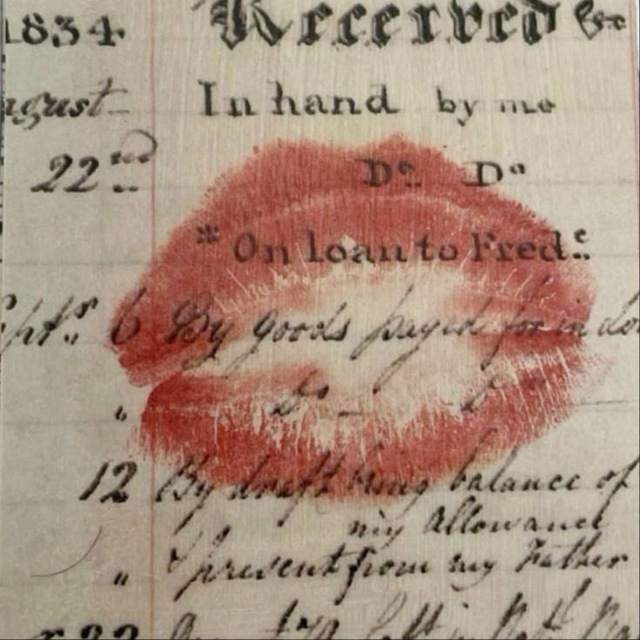 1834 Received &c
August In hand by me
22nd Do. Do
* On loan to Fred:
Septr. 6 By goods payed for in
" Do
12 By draft being balance of
my Allowance
" & present from my Father